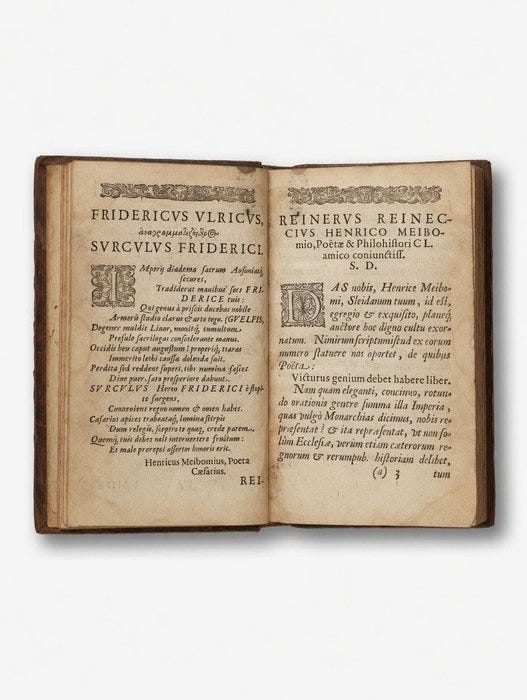 FRIDERICVS VLRICVS,
ἀναγραμματιζόμενος
SVRCVLVS FRIDERICI.
IMperij diadema sacrum Ausoniasq́
secures,
Tradiderat manibus sors FRI-
DERICE tuis:
Qui genus à priscis ducebas nobile
Armorū studio clarus & arte toga. (GVELFIS,
Degener maldit Linor,
Pensule sacrilegas manus.
Occidis heu caput augustum! properiq́, tiaras
Immerito lethi caussa dolenda fuit.
Perdita sed reddent superi, tibi numina fasces
Dine puer, fato prosperiore dabunt.
SVRCVLVS Heroo FRIDERICI è stipi-
te surgens,
Conueniens regno nomen & omen habes.
Cæsarios apices trabeasq́,
Dum relegis, sceptro te quoq, crede parem.
Quemq́, tuis debes noli interuertere fructum:
Et male prærepti assertor honoris eris.
Henricus Meibomius, Poeta
Cæsarius.
REI-
REINERVS REINEC-
CIVS HENRICO MEIBO-
mio, Poëtæ & Philohistori CL.
amico coniunctiss.
S. D.
DAS nobis, Henrice Meibo-
mi, Sleidanum tuum, id est,
egregio & exquisito, planeq́
auctore hoc digno cultu exor-
natum. Nimirum scriptum istud ex eorum
numero statuere nos oportet, de quibus
Poëta:
Victurus genium debet habere liber.
Nam quam eleganti, concinno, rotun-
do orationis genere summa illa Imperia,
quas vulgò Monarchias dicimus, nobis re-
præsentat? & ita repræsentat, vt non so-
lùm Ecclesiæ, verùm etiam cæterorum re-
gnorum & rerumpub. historiam delibet,
(a) 3 tum